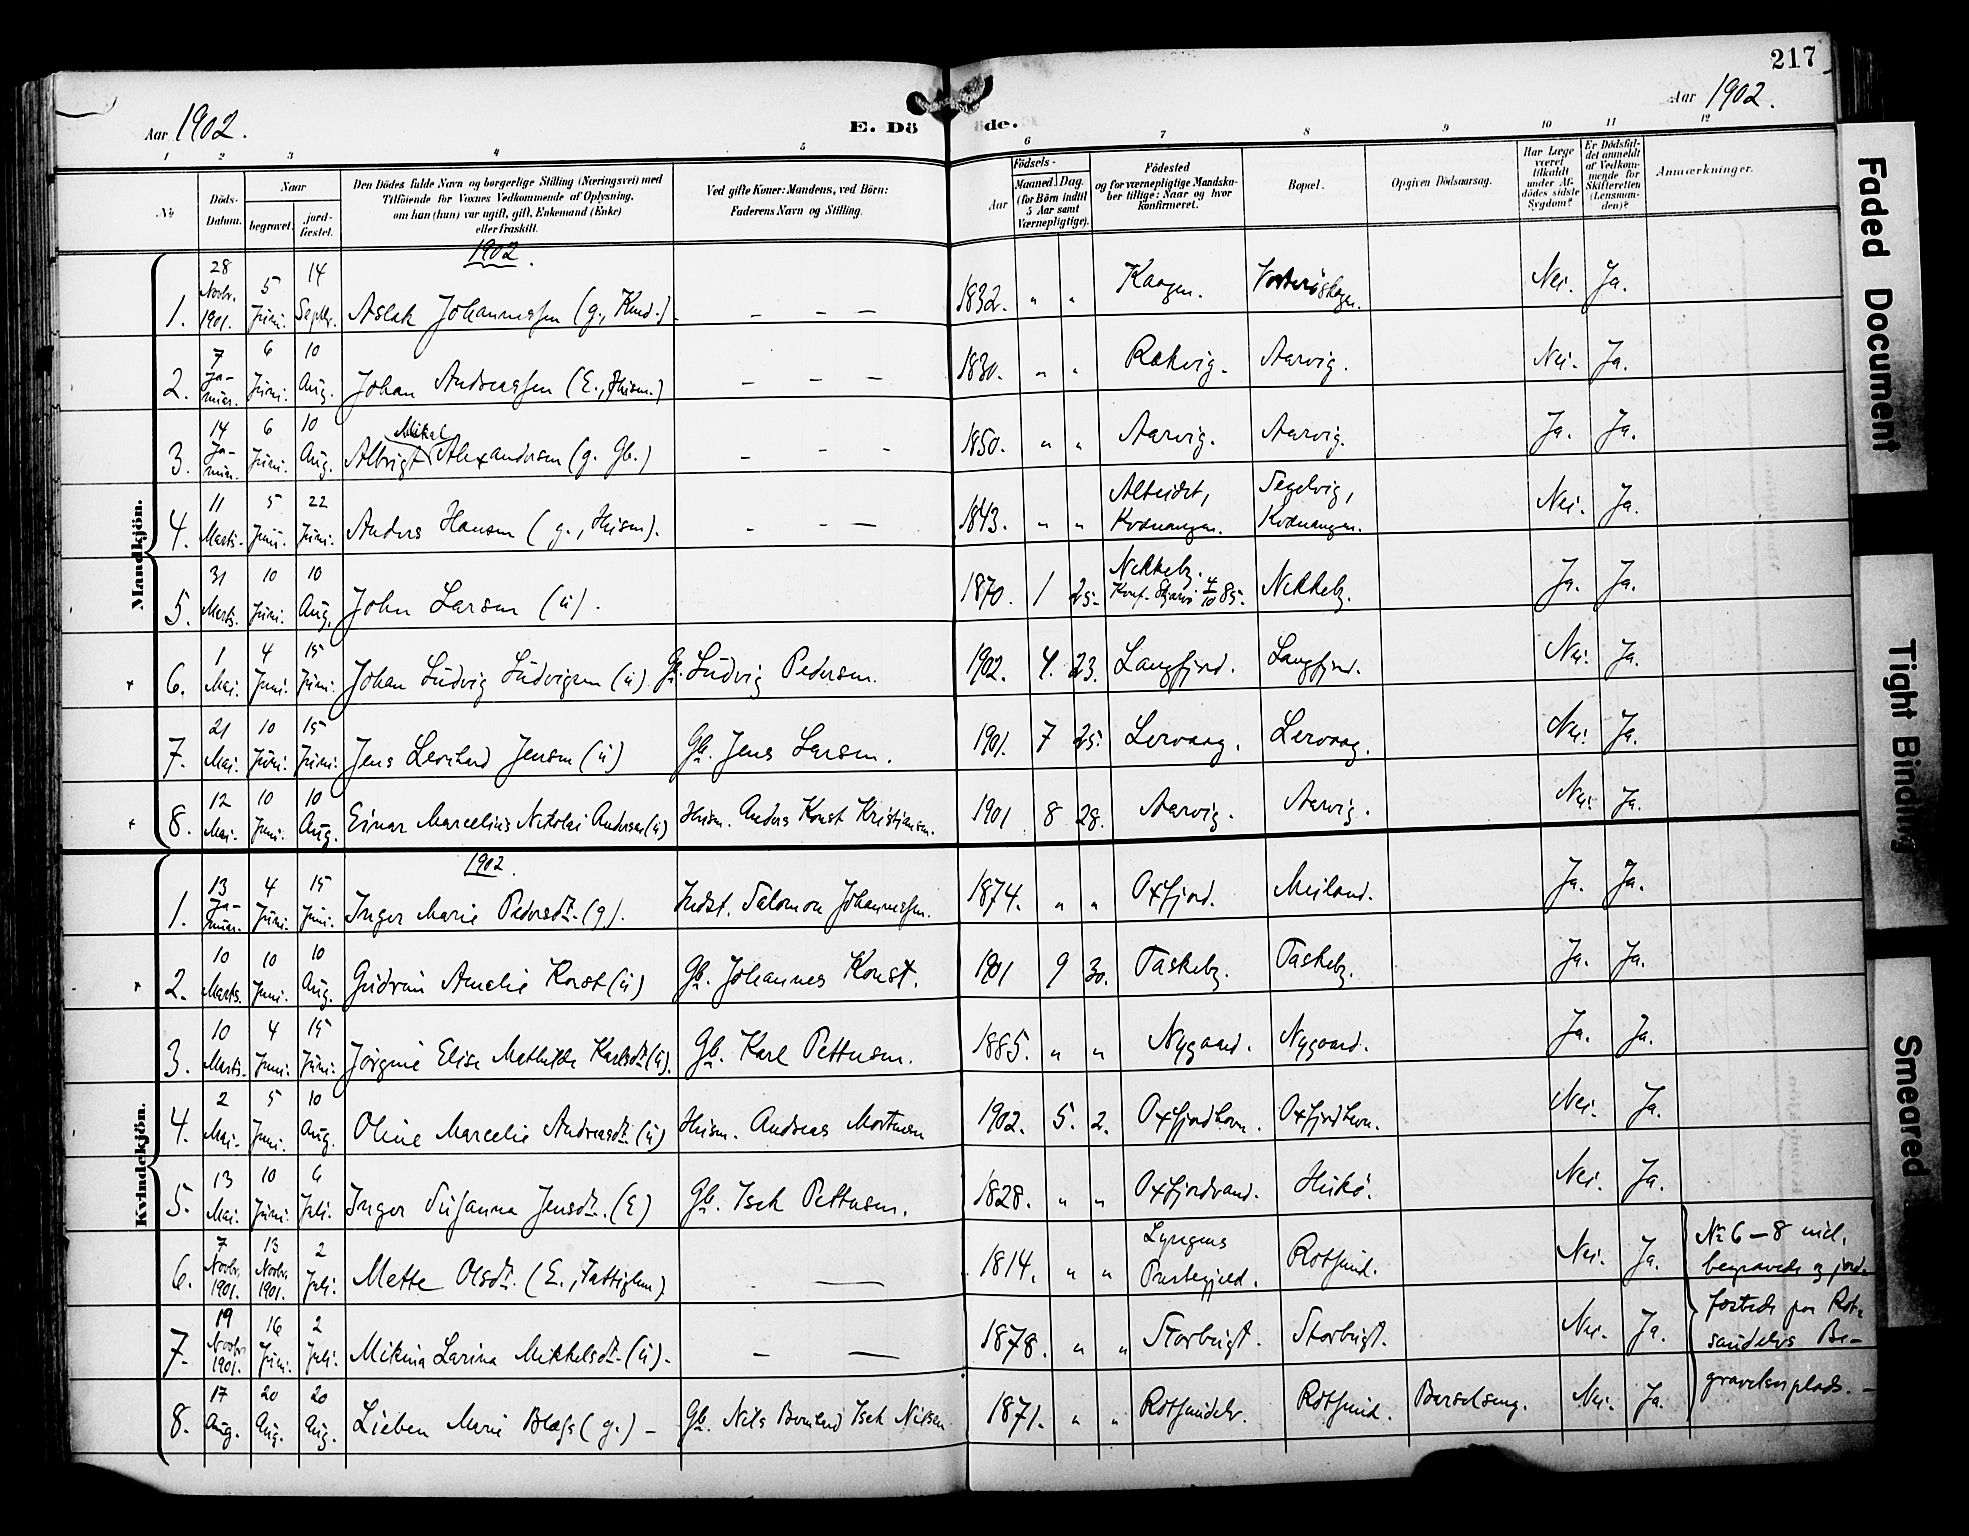 217
Aar 1902.
E. Döde.
Aar 1902.
1 2 3 4 5 6 7 8 9 10 11 12
No
Döds-Datum.
Naar
begravet.
jord-fæstet.
Den Dödes fulde Navn og borgerlige Stilling (Næringsvei) med
Tilföiende for Voxnes Vedkommende af Oplysning,
om han (hun) var ugift, gift, Enkemand (Enke)
eller fraskilt.
Ved gifte Koner: Mandens, ved Börn:
Faderens Navn og Stilling.
Födsels-
Aar
Maaned. Dag.
(for Börn indtil
5 Aar samt
Værnepligtige).
Födested
og for værnepligtige Mandska-
ber tillige: Naar og hvor
konfirmeret.
Bopæl.
Opgiven Dödsaarsag.
Har Læge
været
tilkaldt
under Af-
dödes sidste
Sygdom?
Er Dödsfal-
det anmeldt
af Vedkom-
mende for
Skifteretten
(Lensman-
den)?
Anmærkninger.
Mandkjön.
1902.
1. 28 Novbr. 1901. 5 Juni. 14 Septbr. Aslak Johannessen (g., ) – – – 1832. " " Kaagen. Nei. Ja.
2. 7 Januar. 6 Juni. 10 Aug. Johan Andreassen (E., Husm.) – – – 1830. " " Rakvig. Aarvig. Nei. Ja.
3. 14 Januar. 6 Juni. 10 Aug. Albrigt Mikal Alexandersen (g. Gb.) – – – 1850. " " Aarvig. Aarvig. Ja. Ja.
4. 11 Marts. 5 Juni. 22 Juni. Anders Hansen (g., Husm). – – – 1843. " " Alteidet, Kvænangen. Segelvig, Kvænangen. Nei. Ja.
5. 31 Marts. 10 Juni. 10 Aug. John Larsen (ú). 1870. 1 25. Nekkelby. Konf. Skjærvö 4/10 85. Nekkelby. Ja. Ja.
x 6. 1 Mai. 4 Juni. 15 Juni. Johan Ludvig Ludvigsen (ú) Gb. Ludvig Pedersen. 1902. 4. 23. Langfjord. Langfjord. Nei. Ja.
7. 21 Mai. 10 Juni. 15 Juni. Jens Leonhard Jensen (ú) Gb. Jens Larsen. 1901. 7 25. Lervaag. Lervaag. Nei. Ja.
x 8. 12 Mai. 10 Juni. 10 Aug. Einar Marcelius Nikolai Andersen (ú) Husm. Anders Konst Kristiansen. 1901 8 28. Aarvig. Aarvig. Nei. Ja.
Kvindekjön.
1902.
1. 13 Januar. 4 Juni. 15 Juni. Inger Marie Pedersdt. (g). Indst. Salomon Johannessen. 1874. " " Oxfjord. Meiland. Ja. Ja.
x 2. 10 Marts. 10 Juni. 10 Aug. Gudrun Amelie Konst (ú) Gb. Johannes Konst. 1901 9 30. Taskeby. Taskeby. Ja. Ja.
3. 10 Marts. 4 Juni. 15 Juni. Jörgine Elise Mathilde Karlsdt (ú). Gb. Karl Pettersen. 1885. " " Nygaard. Nygaard. Ja. Ja.
4. 2 Mai. 5 Juni. 10 Aug. Oline Marcelie Andreasdt. (ú) Husm. Andreas Mortensen 1902. 5. 2. Oxfjordhavn. Oxfjordhavn. Nei. Ja.
5. 13 Mai. 10 Juni. 6 Juli. Inger Susanna Jensdt. (E) Gb. Isak Pettersen. 1828. " " Oxfjordvand. Hukö. Nei. Ja.
6. 7 Novbr. 1901. 13 Novbr. 1901. 2 Juli. Mette Olsdt. (E., Fattiglem) – — 1814. " " Lyngens Præstegjeld. Rotsund. Nei. Ja.
7. 19 Novbr. 1901. 16 Juni. 2 Juli. Mikina Larina Mikkelsdt. (ú). – — 1878. " " Storbugt. Storbugt. Nei. Ja.
8. 17 Aug. 20 Aug. 20 Aug. Lisben Marie (g.) – Gb. Nils Bernhard Isak Nilsen 1871. " " Rotsundelv. Rotsund. Barselseng. Nei. Ja.
No 6 – 8 incl.
begravede og jord-
fæstede paa Rot-
sundelvs Be-
gravelsesplads. –
Faded Document
Tight Binding
Smeared